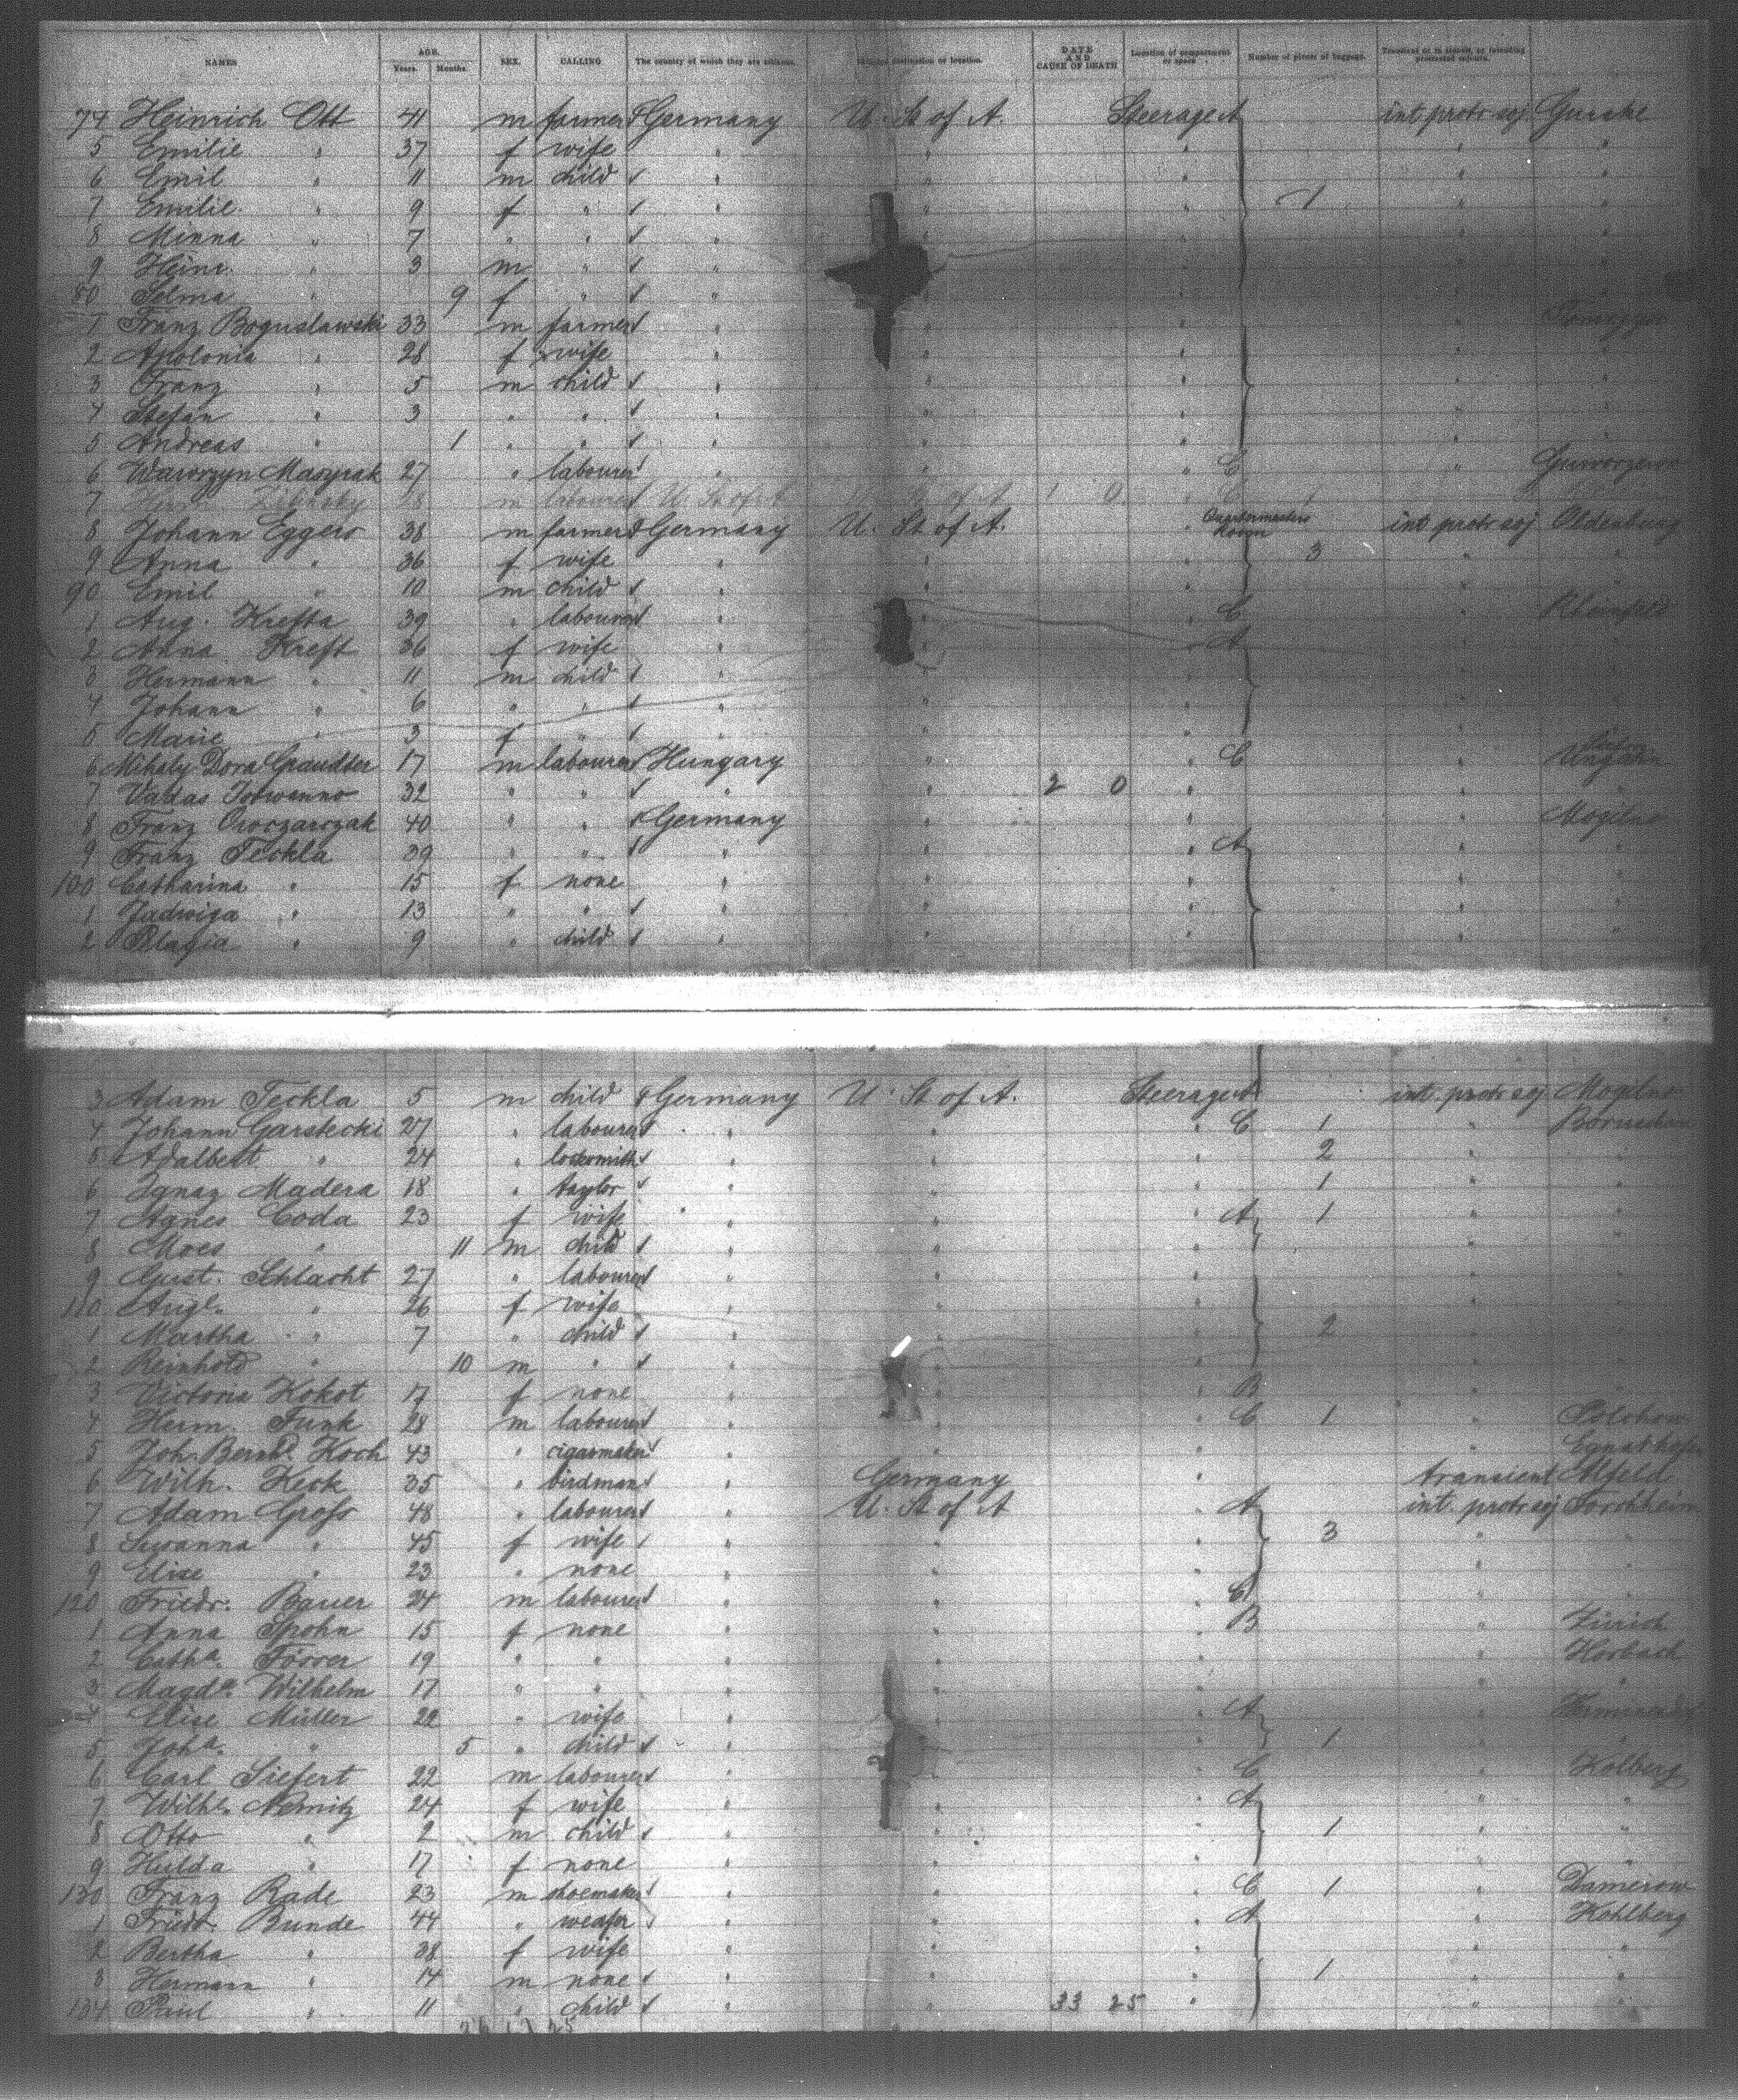 NAMES AGE. Years. Months. SEX. CALLING The country of which they are citizens. Intended destination or location. DATE AND CAUSE OF DEATH Location of compartment or space Number of pieces of baggage. Transient or in transit, or intending protracted sojourn.
74 Heinrich Ott 41 m farmer Germany U. St of A. Steerage A int protr soj
5 Emilie " 37 f wife " " " " "
6 Emil " 11 m child " " " " "
7 Emilie " 9 f " " " " 1 " "
8 Minna " 7 " " " " " " "
9 Heinr. " 3 m " " " " " "
80 Selma " 9 f " " " " " "
1 Franz Boguslawski 33 m farmer " " " "
2 Apolonia " 28 f wife " " " " "
3 Franz " 5 m child " " " " "
4 Stefan " 3 " " " " " " "
5 Andreas " 1 " " " " " " "
6 27 " labourer " " " C "
7 18 m labourer U. St of A U. St of A 1 0 " C 1
8 Johann Eggers 38 m farmer Germany U. St of A. " Quartermasters Room int protr soj Oldenburg
9 Anna " 36 f wife " " " 3 " "
90 Emil " 10 m child " " " " "
1 Aug. Krefta 39 " labourer " " " C " Rheinfeld
2 Anna Kreft 36 f wife " " " A " "
3 Hermann " 11 m child " " " " "
4 Johann " 6 " " " " " " "
5 Marie " 3 f " " " " " "
6 Mihaly Dora 17 m labourer Hungary " " C " Ungarn
7 32 " " " " 2 0 " " "
8 Franz 40 " " Germany " " " Mogilno
9 Franz Teckla 39 " " " " " A " "
100 Catharina " 15 f none " " " " "
1 Jadwiga " 13 " " " " " " "
2 Pelagia " 9 " child " " " " "
3 Adam Teckla 5 m child Germany U. St of A. Steerage A int. protr soj Mogilno
4 Johann Garstecki 27 " labourer " " " C 1 "
5 Adalbert " 24 " locksmith " " " 2 " "
6 Ignaz Madera 18 " taylor " " " 1 " "
7 Agnes Coda 23 f wife " " " A 1 " "
8 " 11 m child " " " " "
9 Gust. Schlacht 27 " labourer " " " " "
110 " 26 f wife " " " " "
1 Martha " 7 " child " " " 2 " "
2 Reinhold " 10 m " " " " " "
3 Victoria Kokot 17 f none " " " B " "
4 Herm. Funk 28 m labourer " " " C 1 "
5 Joh. Bernhd. Koch 43 " cigarmaker " " " "
6 Wilh. Keck 35 " birdman " Germany " transient Alfeld
7 Adam Gross 48 " labourer " U. St of A " A int. protr soj Forchheim
8 Susanna " 45 f wife " " " 3 " "
9 Elise " 23 " none " " " " "
120 Friedr. Bauer 24 m labourer " " " C " "
1 Anna Spohn 15 f none " " " B " Zürich
2 Catha. Förrer 19 " " " " " " Horbach
3 Magda. Wilhelm 17 " " " " " " "
4 Elise Müller 22 " wife " " " A "
5 Joha. " 5 " child " " " 1 " "
6 Carl Siefert 22 m labourer " " " C " Kolberg
7 Wilhe. Nemitz 24 f wife " " " A " "
8 Otto " 2 m child " " " 1 " "
9 Hulda " 17 f none " " " " "
130 Franz Rade 23 m shoemaker " " " C 1 " Damerow
1 Friedr. Bunde 44 " weafer " " " A " Kohlberg
2 Bertha " 38 f wife " " " " "
3 Hermann " 14 m none " " " 1 " "
134 Paul " 11 " child " " 33 25 " " "